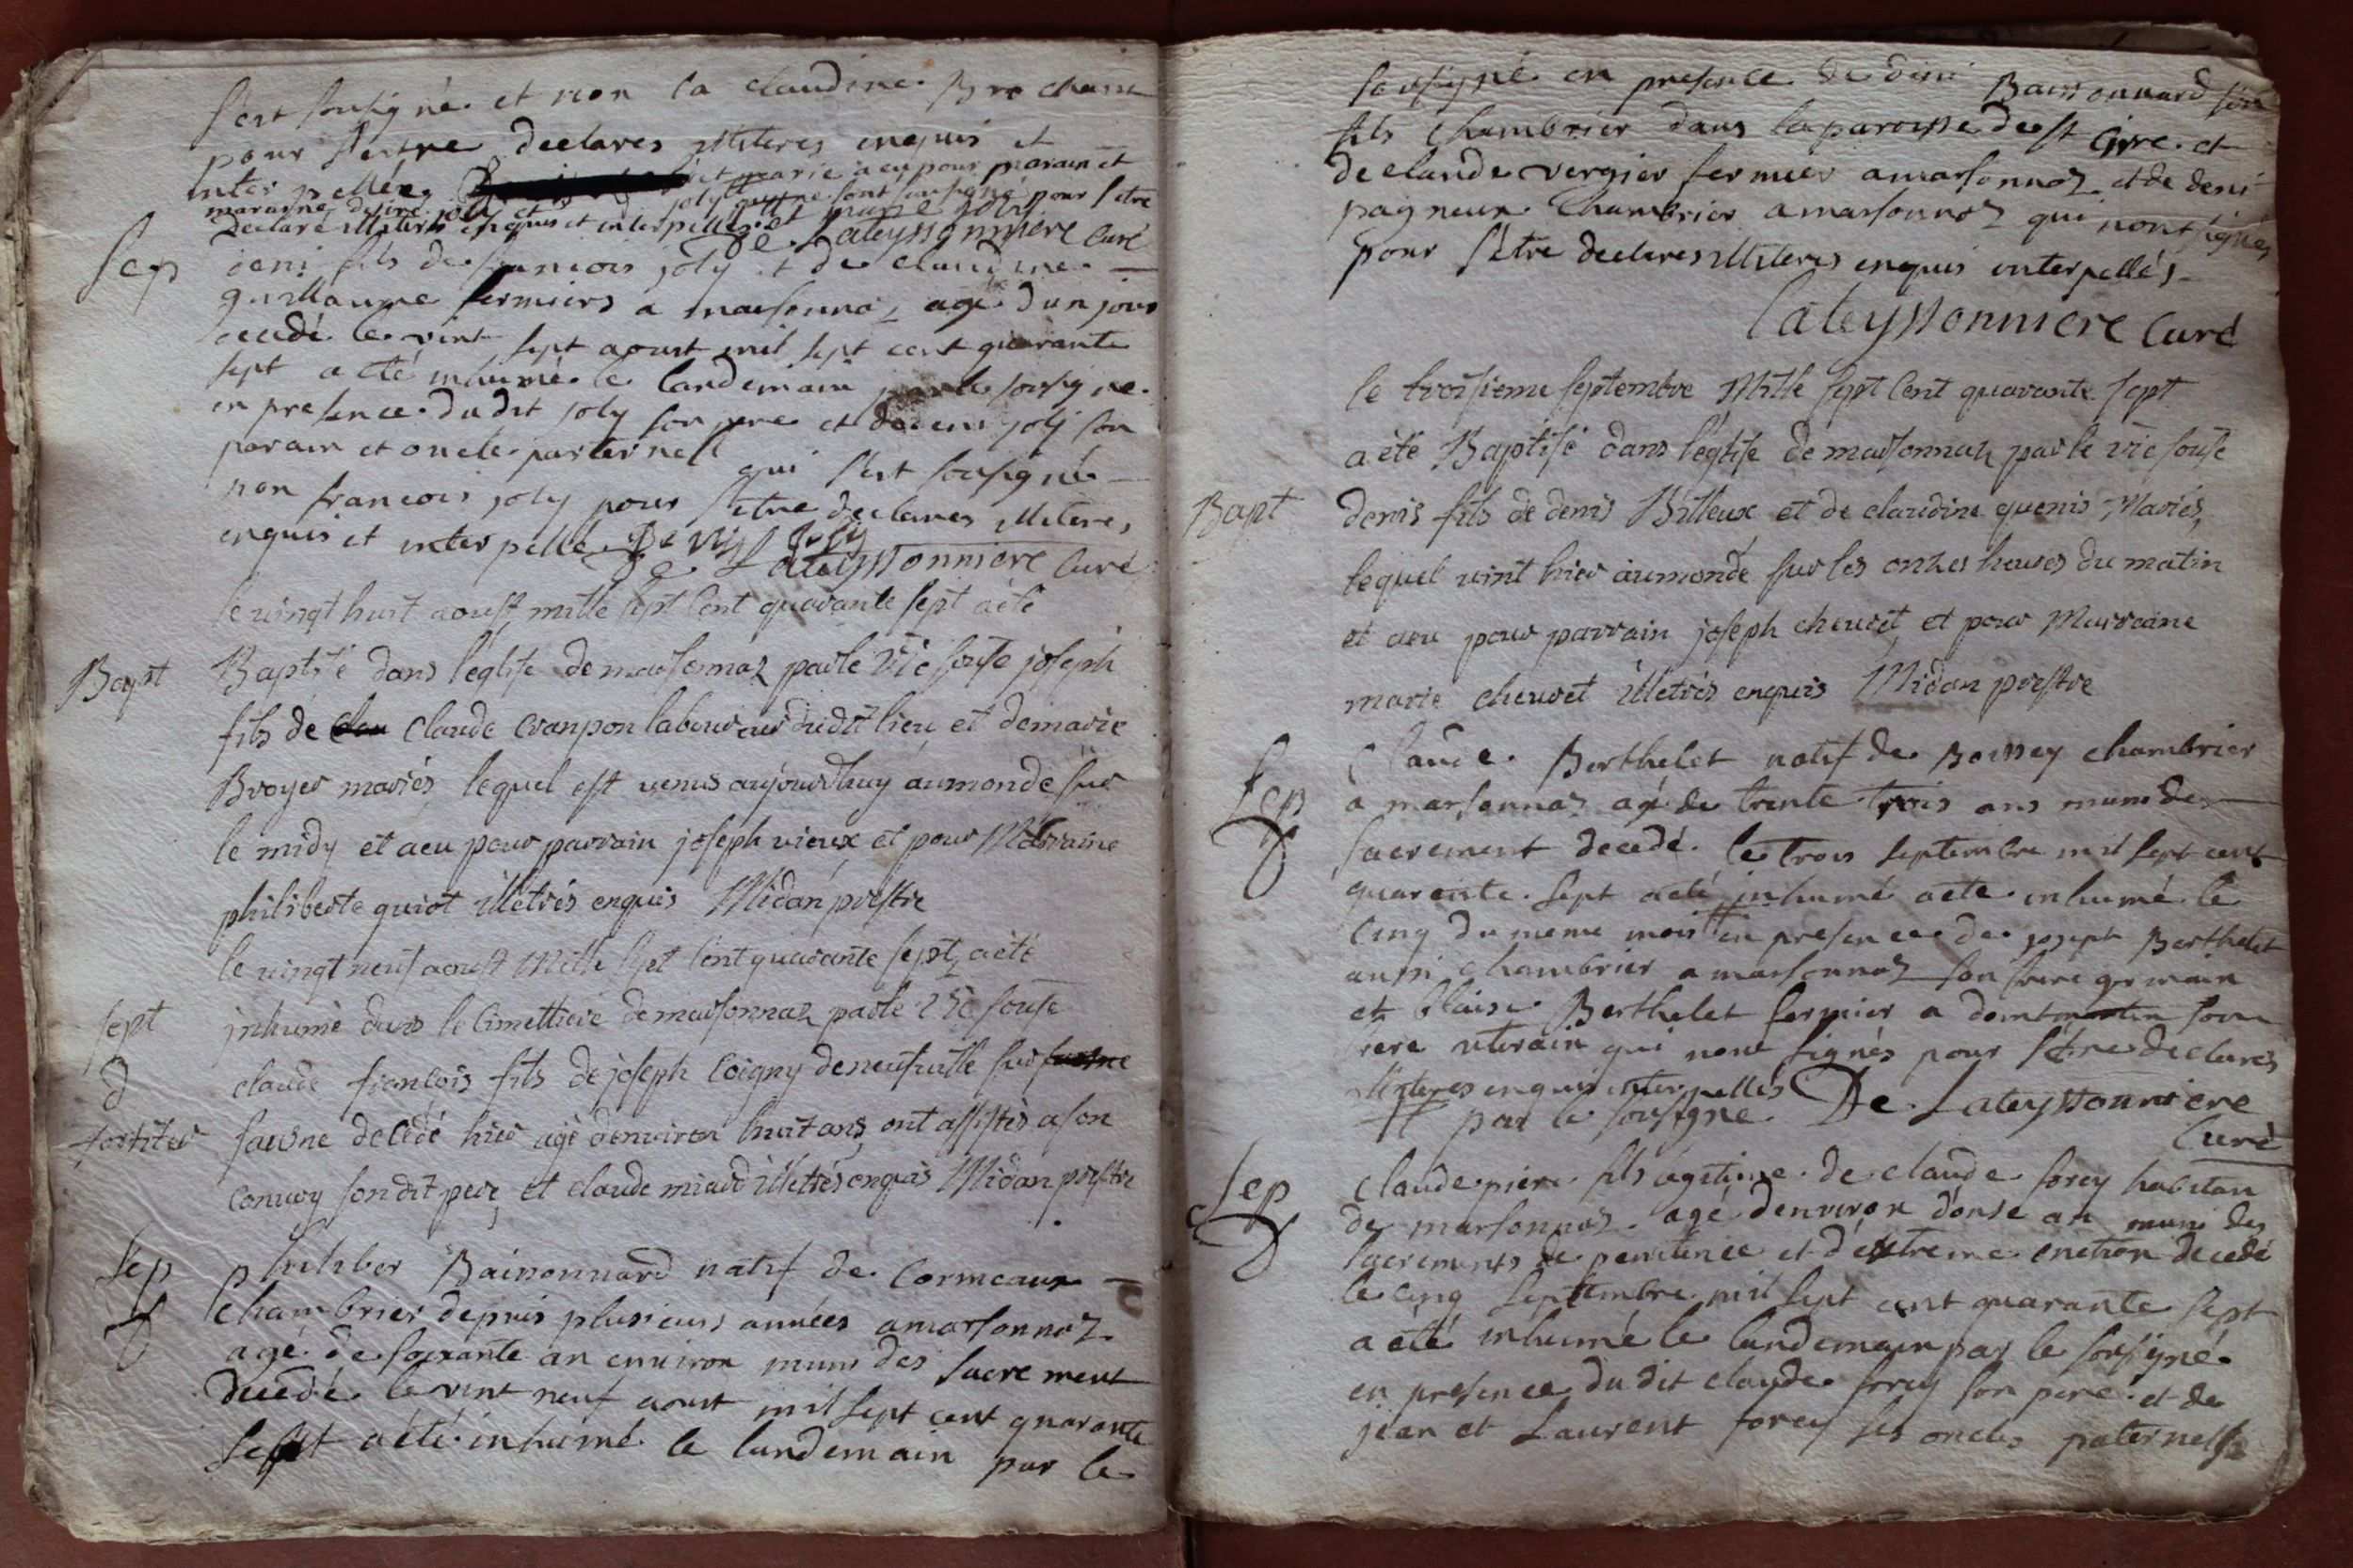 s'est sousigné et non la claudine Brocham
pour s'estre declares illiteres enquis et
interpellée
declaré illiteres enquis et interpellés
De Lateyssonniere Curé
Sep
deni fils de francois joly et de claudine
guillaume fermiers a marsonnas agé d'un jour
decedé le vint sept aoust mil sept cent quarante
sept a eté inhumé le landemain par le sousigné
en presence du dit joly son pere et de deni joly son
parain et oncle parternel qui s'est sousigné
non francois joly pour s'etre declares illiteres
enquis et interpellé Denis Joly
De Lateyssonniere Curé
le vingt huit aoust mille sept cent quarante sept a été
Bapt
Baptisé dans l'eglise de marsonnaz par le vic souse joseph
fils de claude cranpon laboureur dudit lieu et de marie
Broyer mariés lequel est venus aujourdhuy au monde sur
le midy et a eu pour parrain joseph vieux et pour Marraine
philiberte quiot illetrés enquis Midan prestre
le vingt neuf aoust Mille sept cent quarante sept, a été
sept
inhumé dans le cimettiere de marsonnaz par le vic souse
d
claude francois fils de joseph Coigny de neufville sur
saosne decedé hier agé denviron huit ans, ont assistés a son
convoy son dit pere et claude miard illetrés enquis Midan prestre
Sep
philiber Baissonnard natif de Cormeaux
chambrier depuis plusieurs années a marsonnaz
agé de soixante an environ muni des sacrement
decedé le vint neuf aoust mil sept cent quarante
sept a été inhumé le landemain par le
sousigné en presence de deni Baissonnard son
fils chambrier dans la paroisse de st Cire et
de claude vergier fermier a marsonnaz et de deni
pagneux chambrier a marsonnaz qui nont signés
pour s'etre declares illiteres enquis interpellés
Lateyssonniere Curé
le troisieme septembre Mille sept Cent quarante sept
a eté Baptisé dans l'eglise de marsonnaz par le vic souse
Bapt
denis fils de denis Billoux et de claudine quenis Mariés,
lequel vint hier au monde sur les onzes heures du matin
et a eu pour parrain joseph cheuret et pour Marraine
marie cheuret illetrés enquis Midan prestre
Claude Berthelet natif de Boissey chambrier
Sep
a marsonnas agé de trente trois ans muni des
sacrement decedé le trois septembre mil sept cent
quarente sept a eté inhumé a ete inhumé le
cinq du meme mois en presence de joseph Berthelet
aussi chambrier a marsonnas son frere germain
et blaise Berthelet fermier a domtmartin son
frere uterain qui nont signés pour s'etre declares
illiteres enquis interpellés
par le sousigné. De Lateyssonniere
Curé
Sep
claude piere fils legitime de claude forey habitan
de marsonnas agé d'environ donse an muni des
sacrements de penitence et d'extreme onction decedé
le cinq septembre mil sept cent quarante sept
a eté inhumé le landemain par le sousigné
en presence du dit claude forey son pere et de
jean et Laurent forey ses oncles paternels